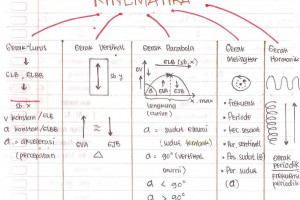 KINEMATIKA
Gerak Lurus
GLB, GLBB
sb. x
v konstan/GLB
a konstan/GLBB
a = akselerasi
(percepatan)
Gerak Vertikal
sb. y
GVA
GJB
Gerak Parabola
GLB (sb. x)
GVA
GJB
x. max
lengkung
(curve)
a = sudut elevasi
(sudut tembak)
a = 90° (vertikal
murni)
a < 90°
a > 90°
Gerak
Melingkar
• Frekuensi
• Periode
• Kec. sesaat
• Per. sentripetal
• Pos. sudut (θ)
• Per. sudut
(α)
Gerak
Harmonik
Gerak
periodik
Frekuensi
periodik